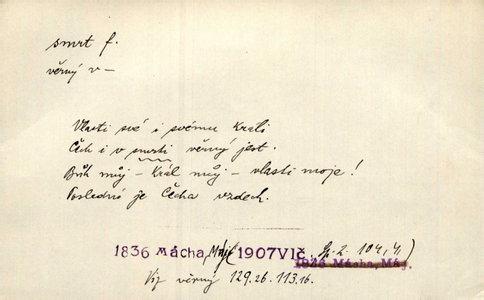 smrt f.
věrný v –
Vlasti své i svému králi
Čech i v smrti věrný jest.
Bůh můj – Král můj – vlasti moje!
Poslední je Čecha vzdech.
1836 Mácha, Máj 1907Vlč, Sp. 2. 104, 4.)
1836 Mácha, Máj.
Viz věrný 129.26. 113.16.